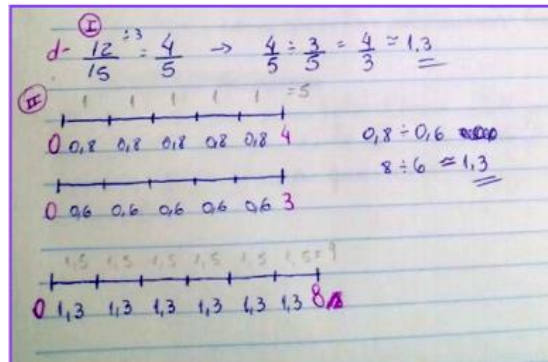 I
d- 12/15 ÷3 = 4/5 → 4/5 ÷ 3/5 = 4/3 ≈ 1,3
II
1 1 1 1 1 =5
0 0,8 0,8 0,8 0,8 0,8 4
0,8 ÷ 0,6
8 ÷ 6 ≈ 1,3
0 0,6 0,6 0,6 0,6 0,6 3
1,5 1,5 1,5 1,5 1,5 1,5=9
0 1,3 1,3 1,3 1,3 1,3 1,3 8